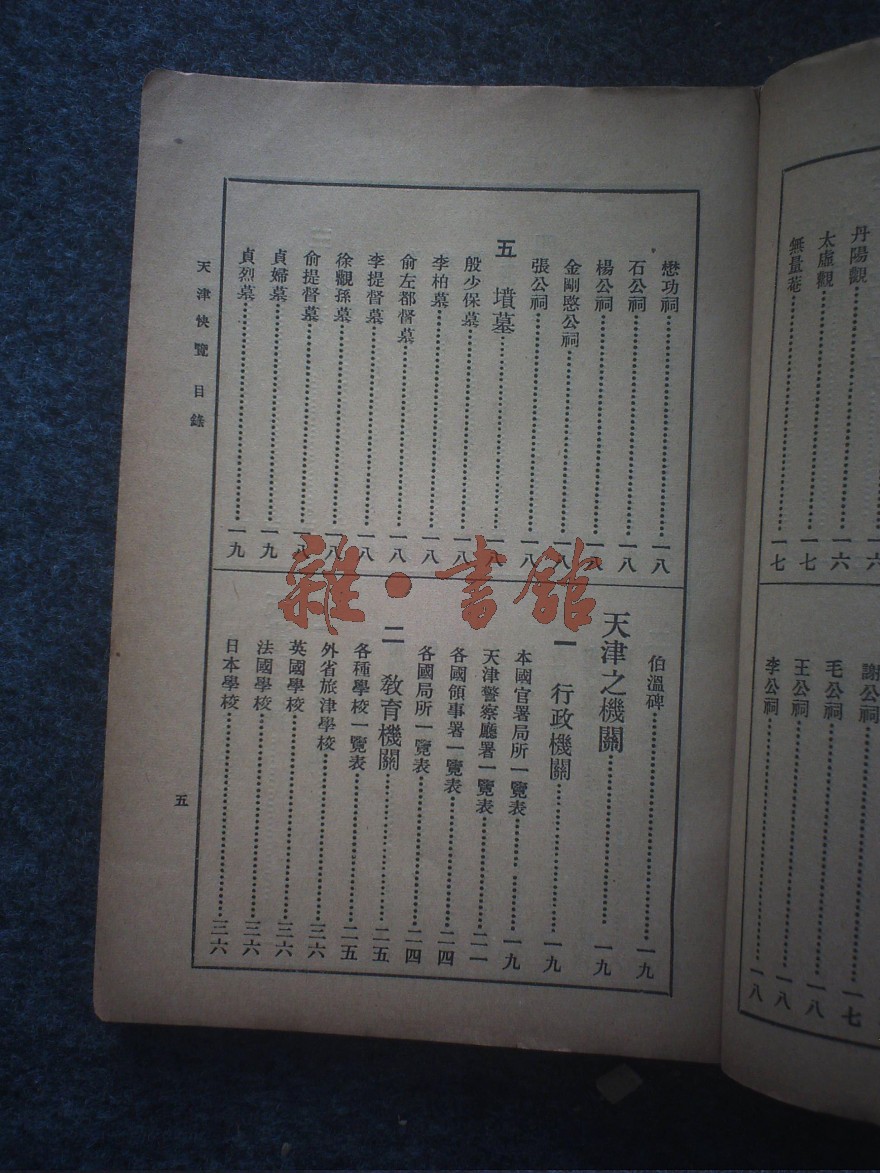 丹陽觀 一六
太虛觀 一六
無量菴 一七
謝公祠 一七
毛公祠 一八
王公祠 一八
李公祠 一八
懋功祠 一八
石公祠 一八
楊公祠 一八
金剛愍公祠 一八
張公祠 一八
五 墳墓 一八
殷少保墓 一八
李柏墓 一八
俞左都督墓 一八
李提督墓 一八
徐觀孫墓 一八
俞提督墓 一八
貞婦墓 一九
貞烈墓 一九
伯溫碑 一九
天津之機關 一九
一 行政機關 一九
本國官署局所一覽表 一九
天津警察廳署一覽表 二一
各國領事署一覽表 二四
各國局所一覽表 二四
二 教育機關 二五
各種學校一覽表 二五
外省旅津學校 三六
英國學校 三六
法國學校 三六
日本學校 三六
天津快覽 目錄
五
雜·書館